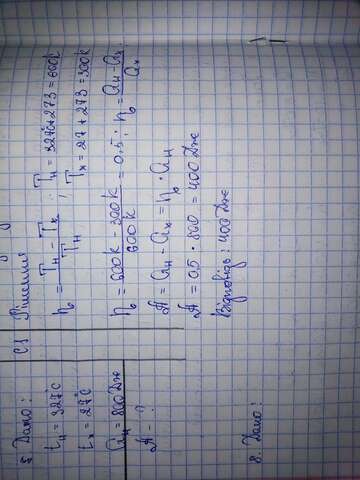 5. Дано:
t_н = 327°C
t_х = 27°C
Q_н = 800 Дж
A - ?
СІ
Рішення
η = (T_н - T_х) / T_н ; T_н = 327°C + 273 = 600K
T_х = 27 + 273 = 300K
η = (600K - 300K) / 600K = 0,5 ; η = (Q_н - Q_х) / Q_х
A = Q_н - Q_х = η · Q_н
A = 0,5 · 800 = 400 Дж
Відповідь: 400 Дж
8. Дано: